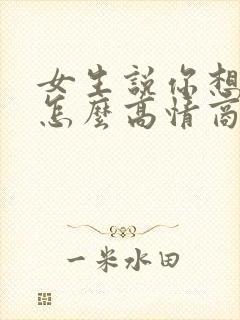 女生說你想
怎麼高情商
一米水田